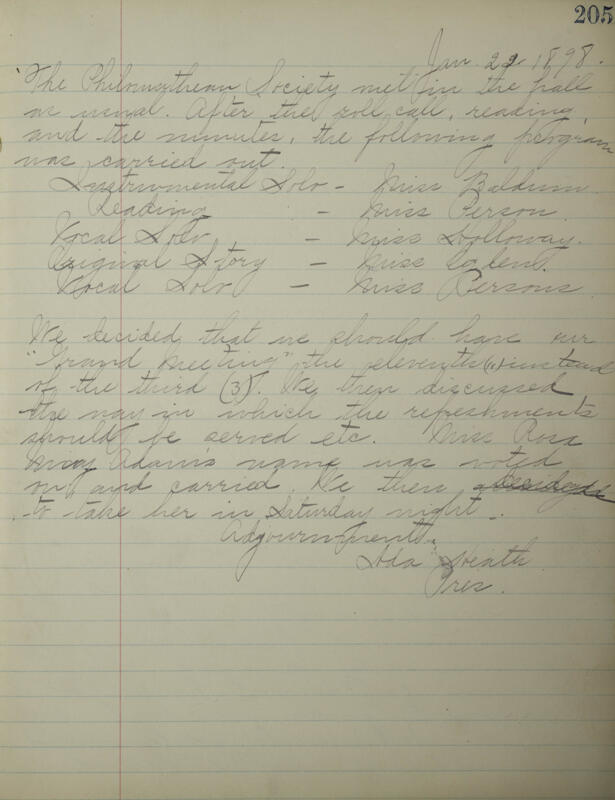 205
Jan. 22 1898.
The Philomathean Society met in the hall
as usual. After the roll call, reading,
and the minutes, the following program
was carried out.
Instrumental Solo - Miss Baldwin
Reading - Miss Person.
Vocal Solo - Miss Holloway.
Original Story - Miss Calent.
Vocal Solo - Miss Persons
We decided that we should have our
"Grand Meeting" the eleventh (11) instead
of the third (3). We then discussed
the way in which the refreshments
should be served etc. Miss Rosa
Adam's name was voted
on and carried. We then
to take her in Saturday night.
Adjournment.
Ida Heath
Pres.